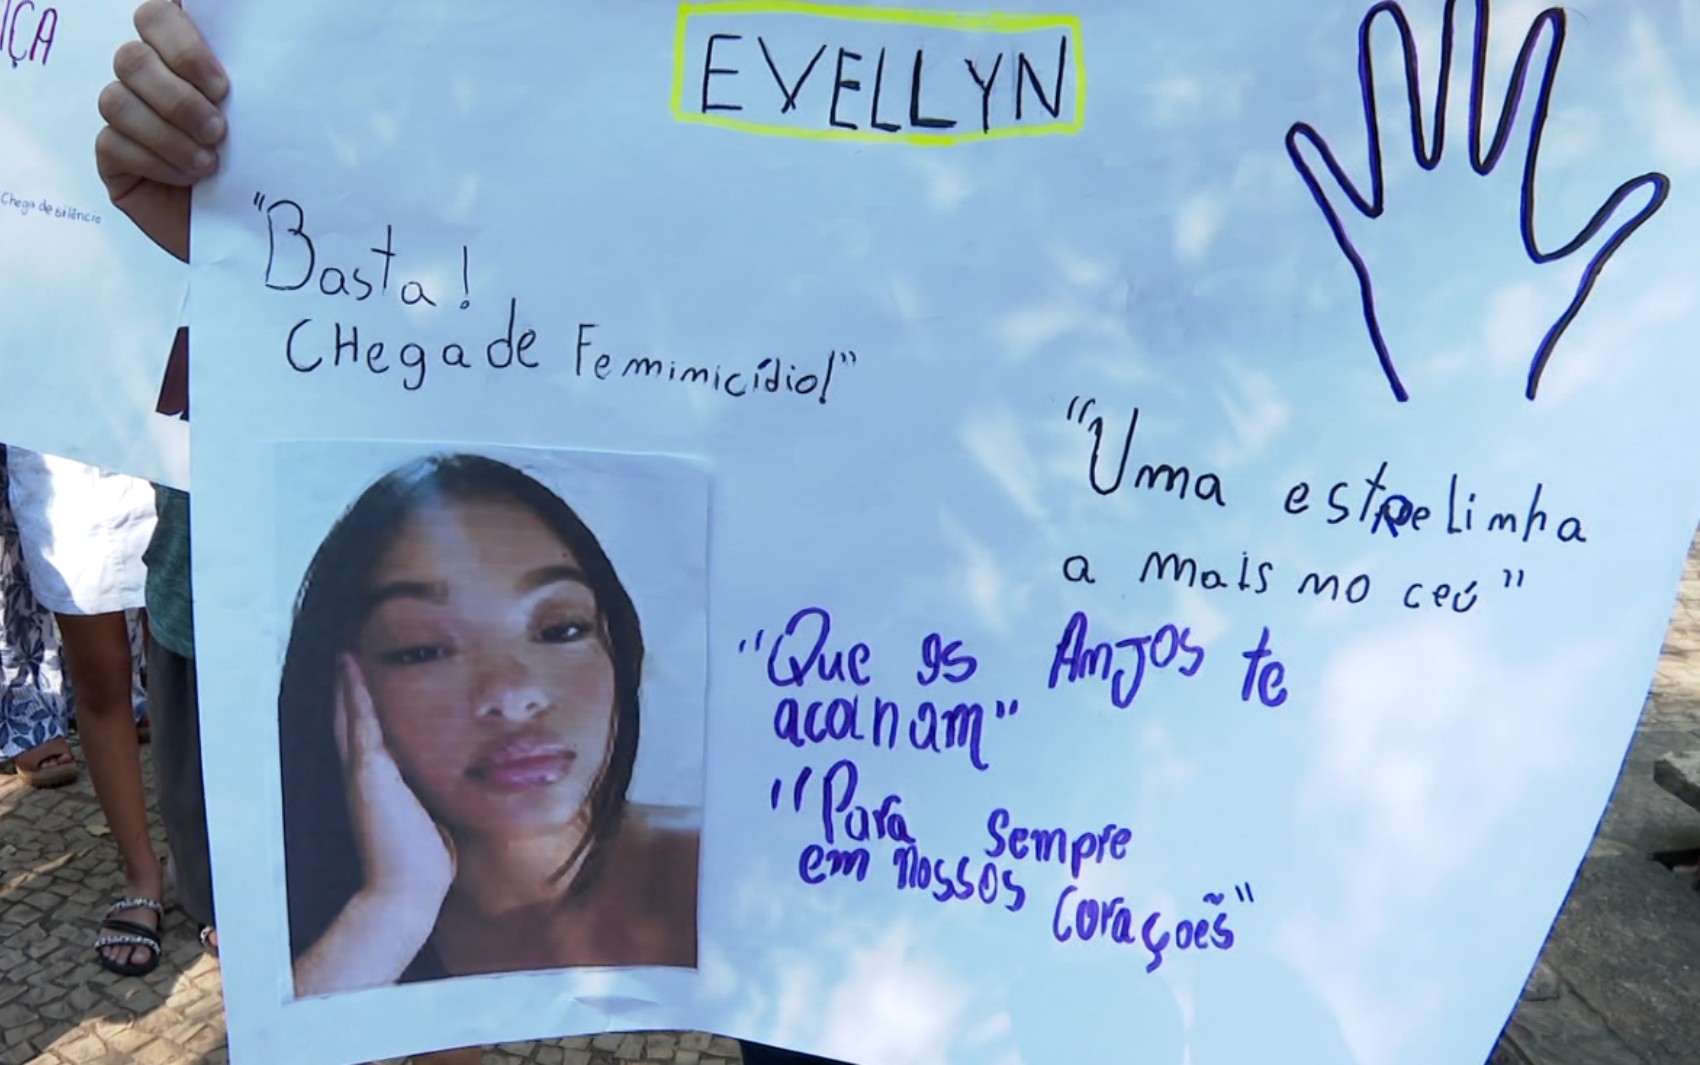 EVELLYN
IÇA
Chega de silêncio
"Basta!
CHega de Feminicídio!"
"Uma estrelinha
a mais no ceú"
"Que os Anjos te
acanam"
"Para sempre
em nossos
Coraçoẽs"